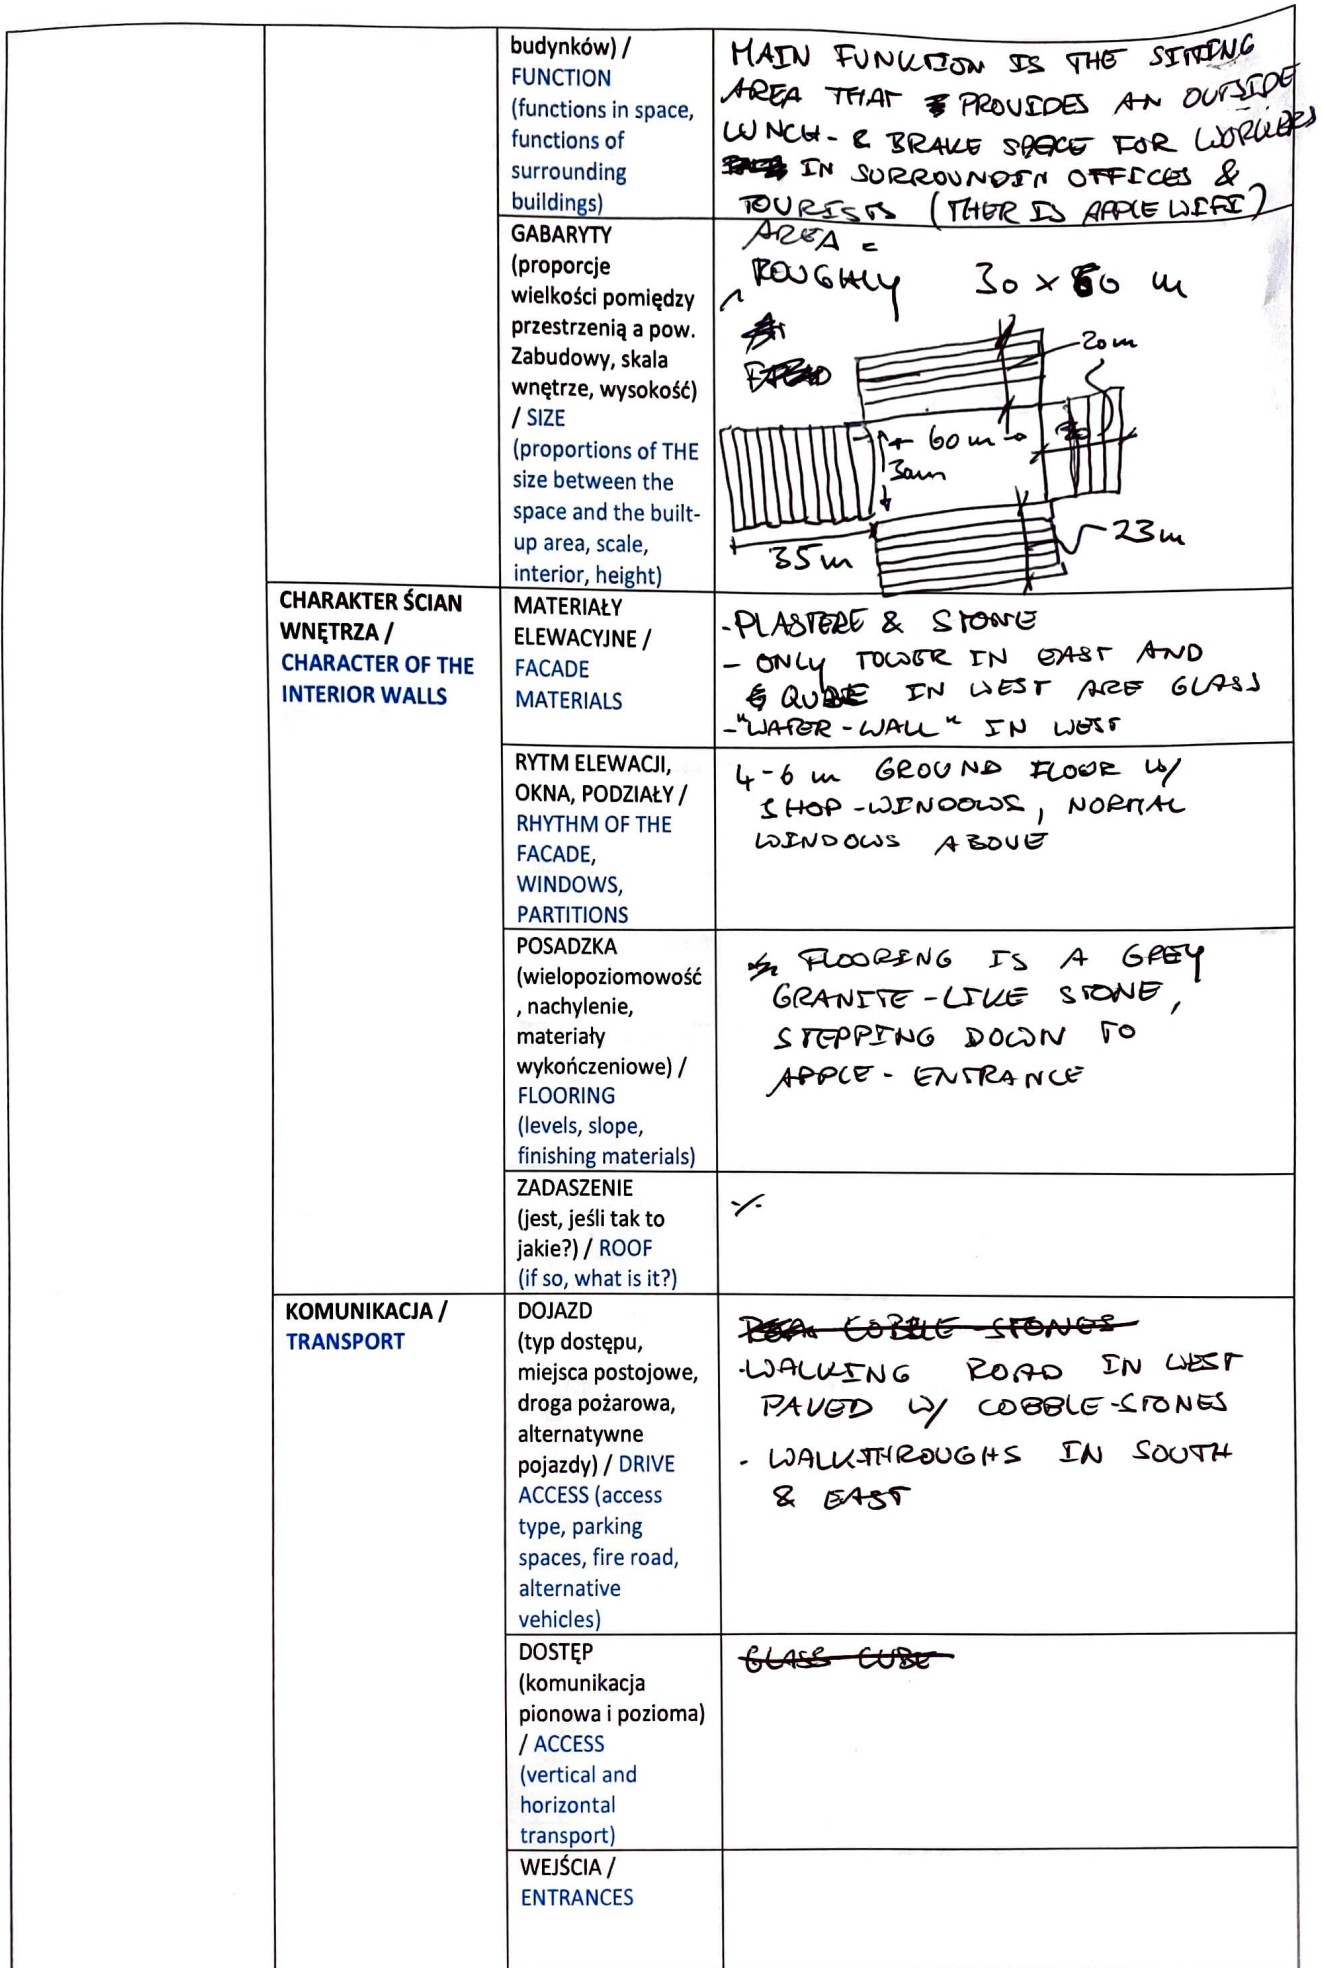 budynków) /
FUNCTION
(functions in space,
functions of
surrounding
buildings)
MAIN FUNKTION IS THE SITTING
AREA THAT PROVIDES AN OUTSIDE
LUNCH- & BRAKE SPACE FOR WORKERS
IN SURROUNDIN OFFICES &
TOURISTS (THER IS APPLE WIFI)
GABARYTY
(proporcje
wielkości pomiędzy
przestrzenią a pow.
Zabudowy, skala
wnętrze, wysokość)
/ SIZE
(proportions of THE
size between the
space and the built-
up area, scale,
interior, height)
AREA =
ROUGHLY 30 x 60 m
20m
60 m
30m
35m
23m
CHARAKTER ŚCIAN
WNĘTRZA /
CHARACTER OF THE
INTERIOR WALLS
MATERIAŁY
ELEWACYJNE /
FACADE
MATERIALS
-PLASTERE & STONE
- ONLY TOWER IN EAST AND
QUBE IN WEST ARE GLASS
-"WATER-WALL" IN WEST
RYTM ELEWACJI,
OKNA, PODZIAŁY /
RHYTHM OF THE
FACADE,
WINDOWS,
PARTITIONS
4-6 m GROUND FLOOR W/
SHOP-WINDOWS, NORMAL
WINDOWS ABOVE
POSADZKA
(wielopoziomowość
, nachylenie,
materiały
wykończeniowe) /
FLOORING
(levels, slope,
finishing materials)
FLOORING IS A GREY
GRANITE-LIKE STONE,
STEPPING DOWN TO
APPLE- ENTRANCE
ZADASZENIE
(jest, jeśli tak to
jakie?) / ROOF
(if so, what is it?)
-/-
KOMUNIKACJA /
TRANSPORT
DOJAZD
(typ dostępu,
miejsca postojowe,
droga pożarowa,
alternatywne
pojazdy) / DRIVE
ACCESS (access
type, parking
spaces, fire road,
alternative
vehicles)
COBBLE-STONES
-WALKING ROAD IN WEST
PAVED W/ COBBLE-STONES
- WALKTHROUGHS IN SOUTH
& EAST
DOSTĘP
(komunikacja
pionowa i pozioma)
/ ACCESS
(vertical and
horizontal
transport)
GLASS CUBE
WEJŚCIA /
ENTRANCES